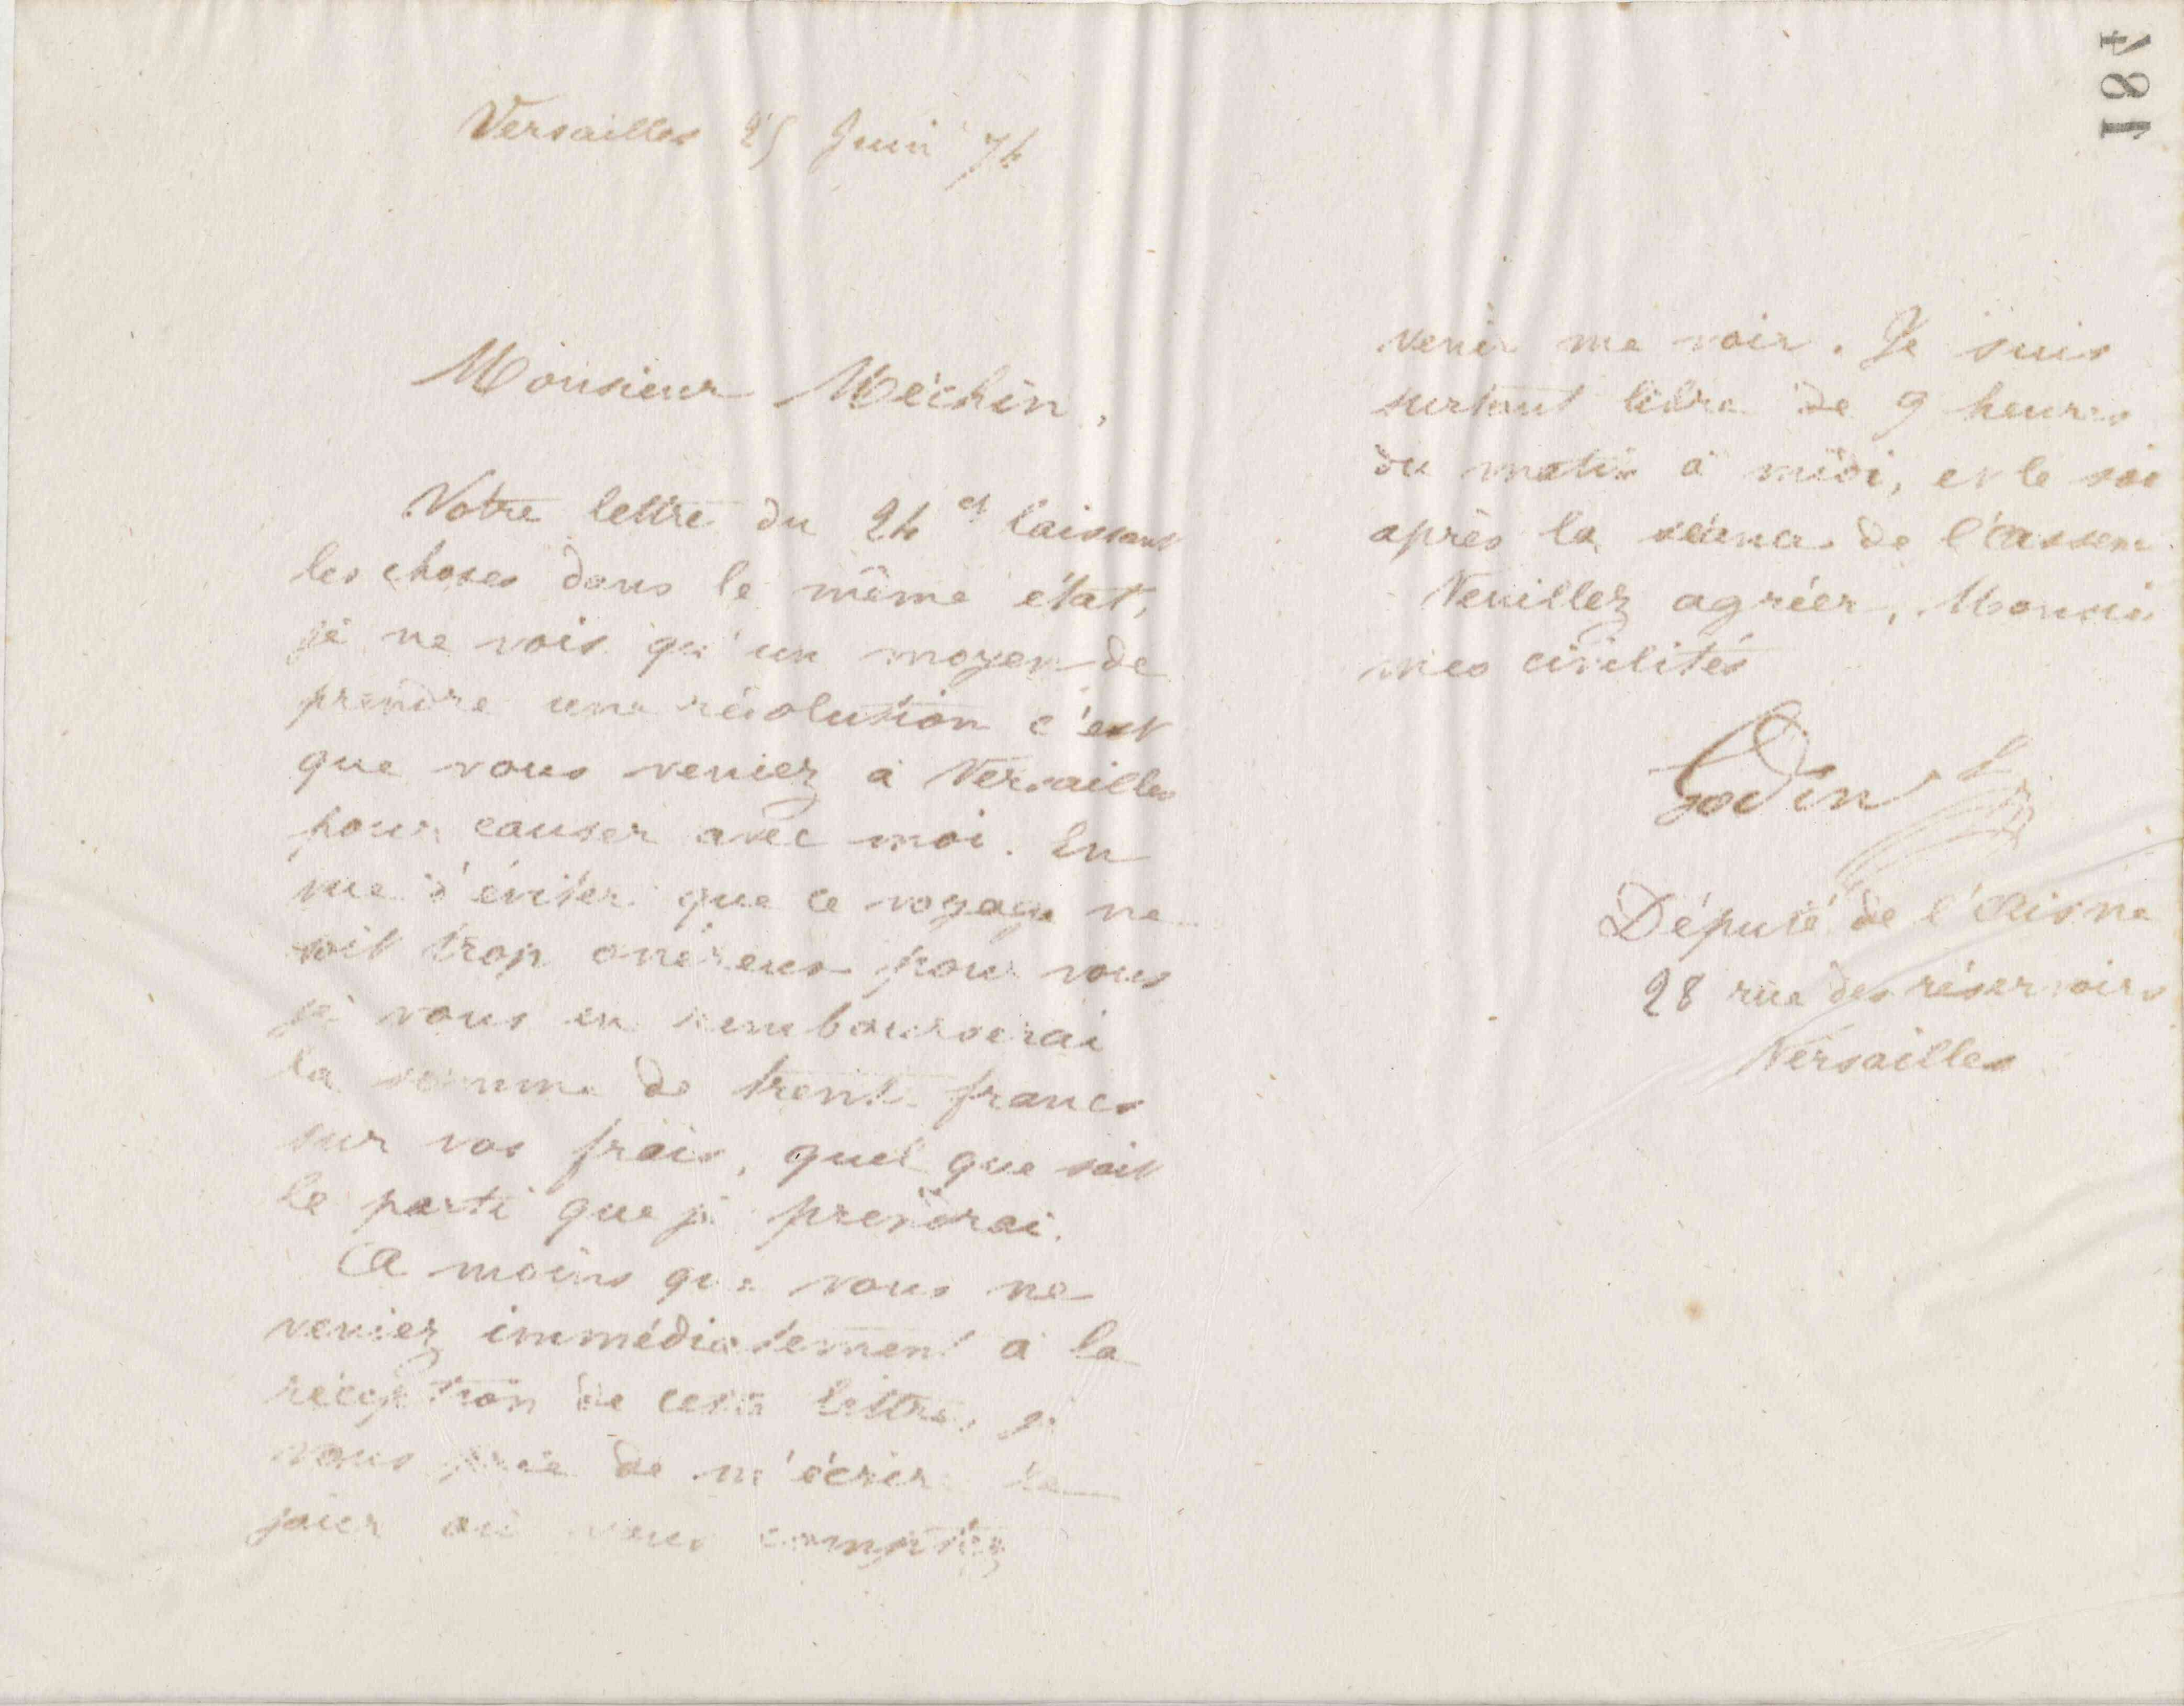 184
Versailles 25 Juin 74
Monsieur Méchin,
Votre lettre du 24 ct laissant
les choses dans le même état,
je ne vois qu'un moyen de
prendre une résolution c'est
que vous veniez à Versailles
pour causer avec moi. En
vue d'éviter que ce voyage ne
soit trop onéreux pour vous
je vous en rembourserai
la somme de trente francs
sur vos frais, quel que soit
le parti que je prendrai.
A moins que vous ne
veniez immédiatement à la
réception de cette lettre, je
vous prie de m'écrire le
jour où vous comptez
venir me voir. Je suis
surtout libre de 9 heures
du matin à midi, et le soi
après la séance de l'assem
Veuillez agréer, Monsie
mes civilités
Godin
Député de l'Aisne
28 rue des réservoirs
Versailles